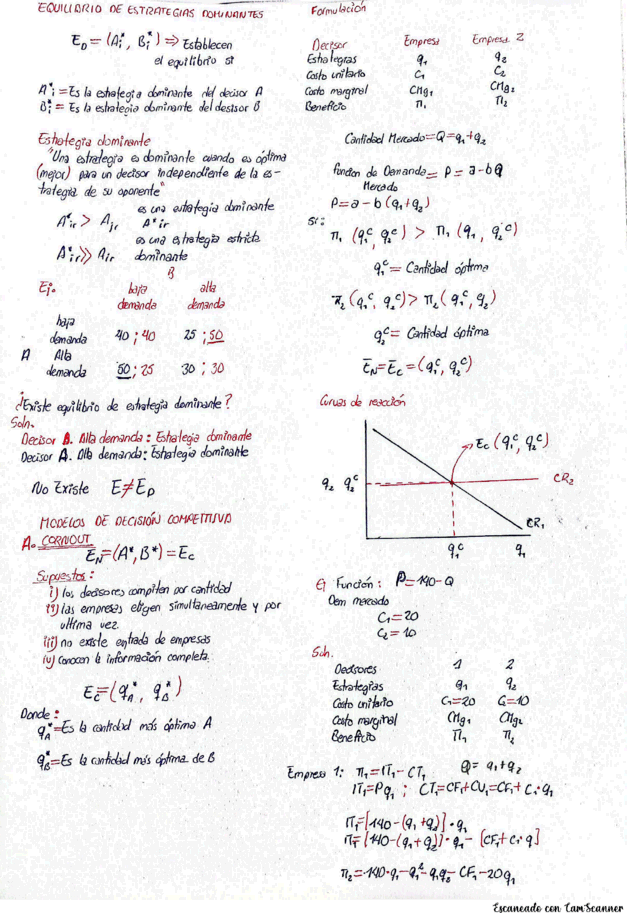 EQUILIBRIO DE ESTRATEGIAS DOMINANTES
E_D = (A_i^*, B_i^*) ⇒ Establecen
el equilibrio si
A_i^* = Es la estrategia dominante del decisor A
B_i^* = Es la estrategia dominante del desisor B
Estrategia dominante
"Una estrategia es dominante cuando es óptima
(mejor) para un decisor independiente de la es-
trategia de su oponente"
A_ir^* > A_jr es una estrategia dominante A^*ir
A_ir^* >> A_ir es una estrategia estricta dominante
B
Ej. baja demanda alta demanda
baja demanda 40 ; 40 25 ; 50
A Alta demanda 50 ; 25 30 ; 30
¿Existe equilibrio de estrategia dominante?
Soln.
Decisor B. Alta demanda: Estrategia dominante
Decisor A. Alta demanda: Estrategia dominante
No Existe E ≠ E_D
MODELOS DE DECISIÓN COMPETITIVA
A. CORNOUT
E_N = (A*, B*) = E_c
Supuestos:
i) los decisores compiten por cantidad
ii) las empresas eligen simultaneamente y por
ultima vez.
iii) no existe entrada de empresas
iv) Conocen la información completa.
E_c = (q_A^*, q_B^*)
Donde:
q_A^* = Es la cantidad más óptima A
q_B^* = Es la cantidad más óptima de B
Formulación
Decisor Empresa Empresa 2
Estrategias q_1 q_2
Costo unitario C_1 C_2
Costo marginal CMg_1 CMg_2
Beneficio π_1 π_2
Cantidad Mercado = Q = q_1 + q_2
Funcion de Demanda = P = a - bQ
Mercado
P = a - b (q_1 + q_2)
Si:
π_1 (q_1^c, q_2^c) > π_1 (q_1, q_2^c)
q_1^c = Cantidad óptima
π_2 (q_1^c, q_2^c) > π_2 (q_1^c, q_2)
q_2^c = Cantidad óptima
E_N = E_c = (q_1^c, q_2^c)
Curvas de reacción
E_c (q_1^c, q_2^c)
q_2 q_2^c CR_2
CR_1
q_1^c q_1
Ej Función: P = 140 - Q
Dem mercado
C_1 = 20
C_2 = 10
Soln.
Decisores 1 2
Estrategias q_1 q_2
Costo unitario C_1 = 20 C_2 = 10
Costo marginal CMg_1 CMg_2
Beneficio π_1 π_2
Empresa 1: π_1 = IT_1 - CT_1 Q = q_1 + q_2
IT_1 = Pq_1 ; CT_1 = CF_1 + CU_1 = CF_1 + C_1·q_1
IT_1 = [140 - (q_1 + q_2)]·q_1
π_1 = [140 - (q_1 + q_2)]·q_1 - [CF_1 + C_1·q]
π_2 = 140·q_1 - q_1^2 - q_1q_2 - CF_1 - 20q_1
Escaneado con CamScanner